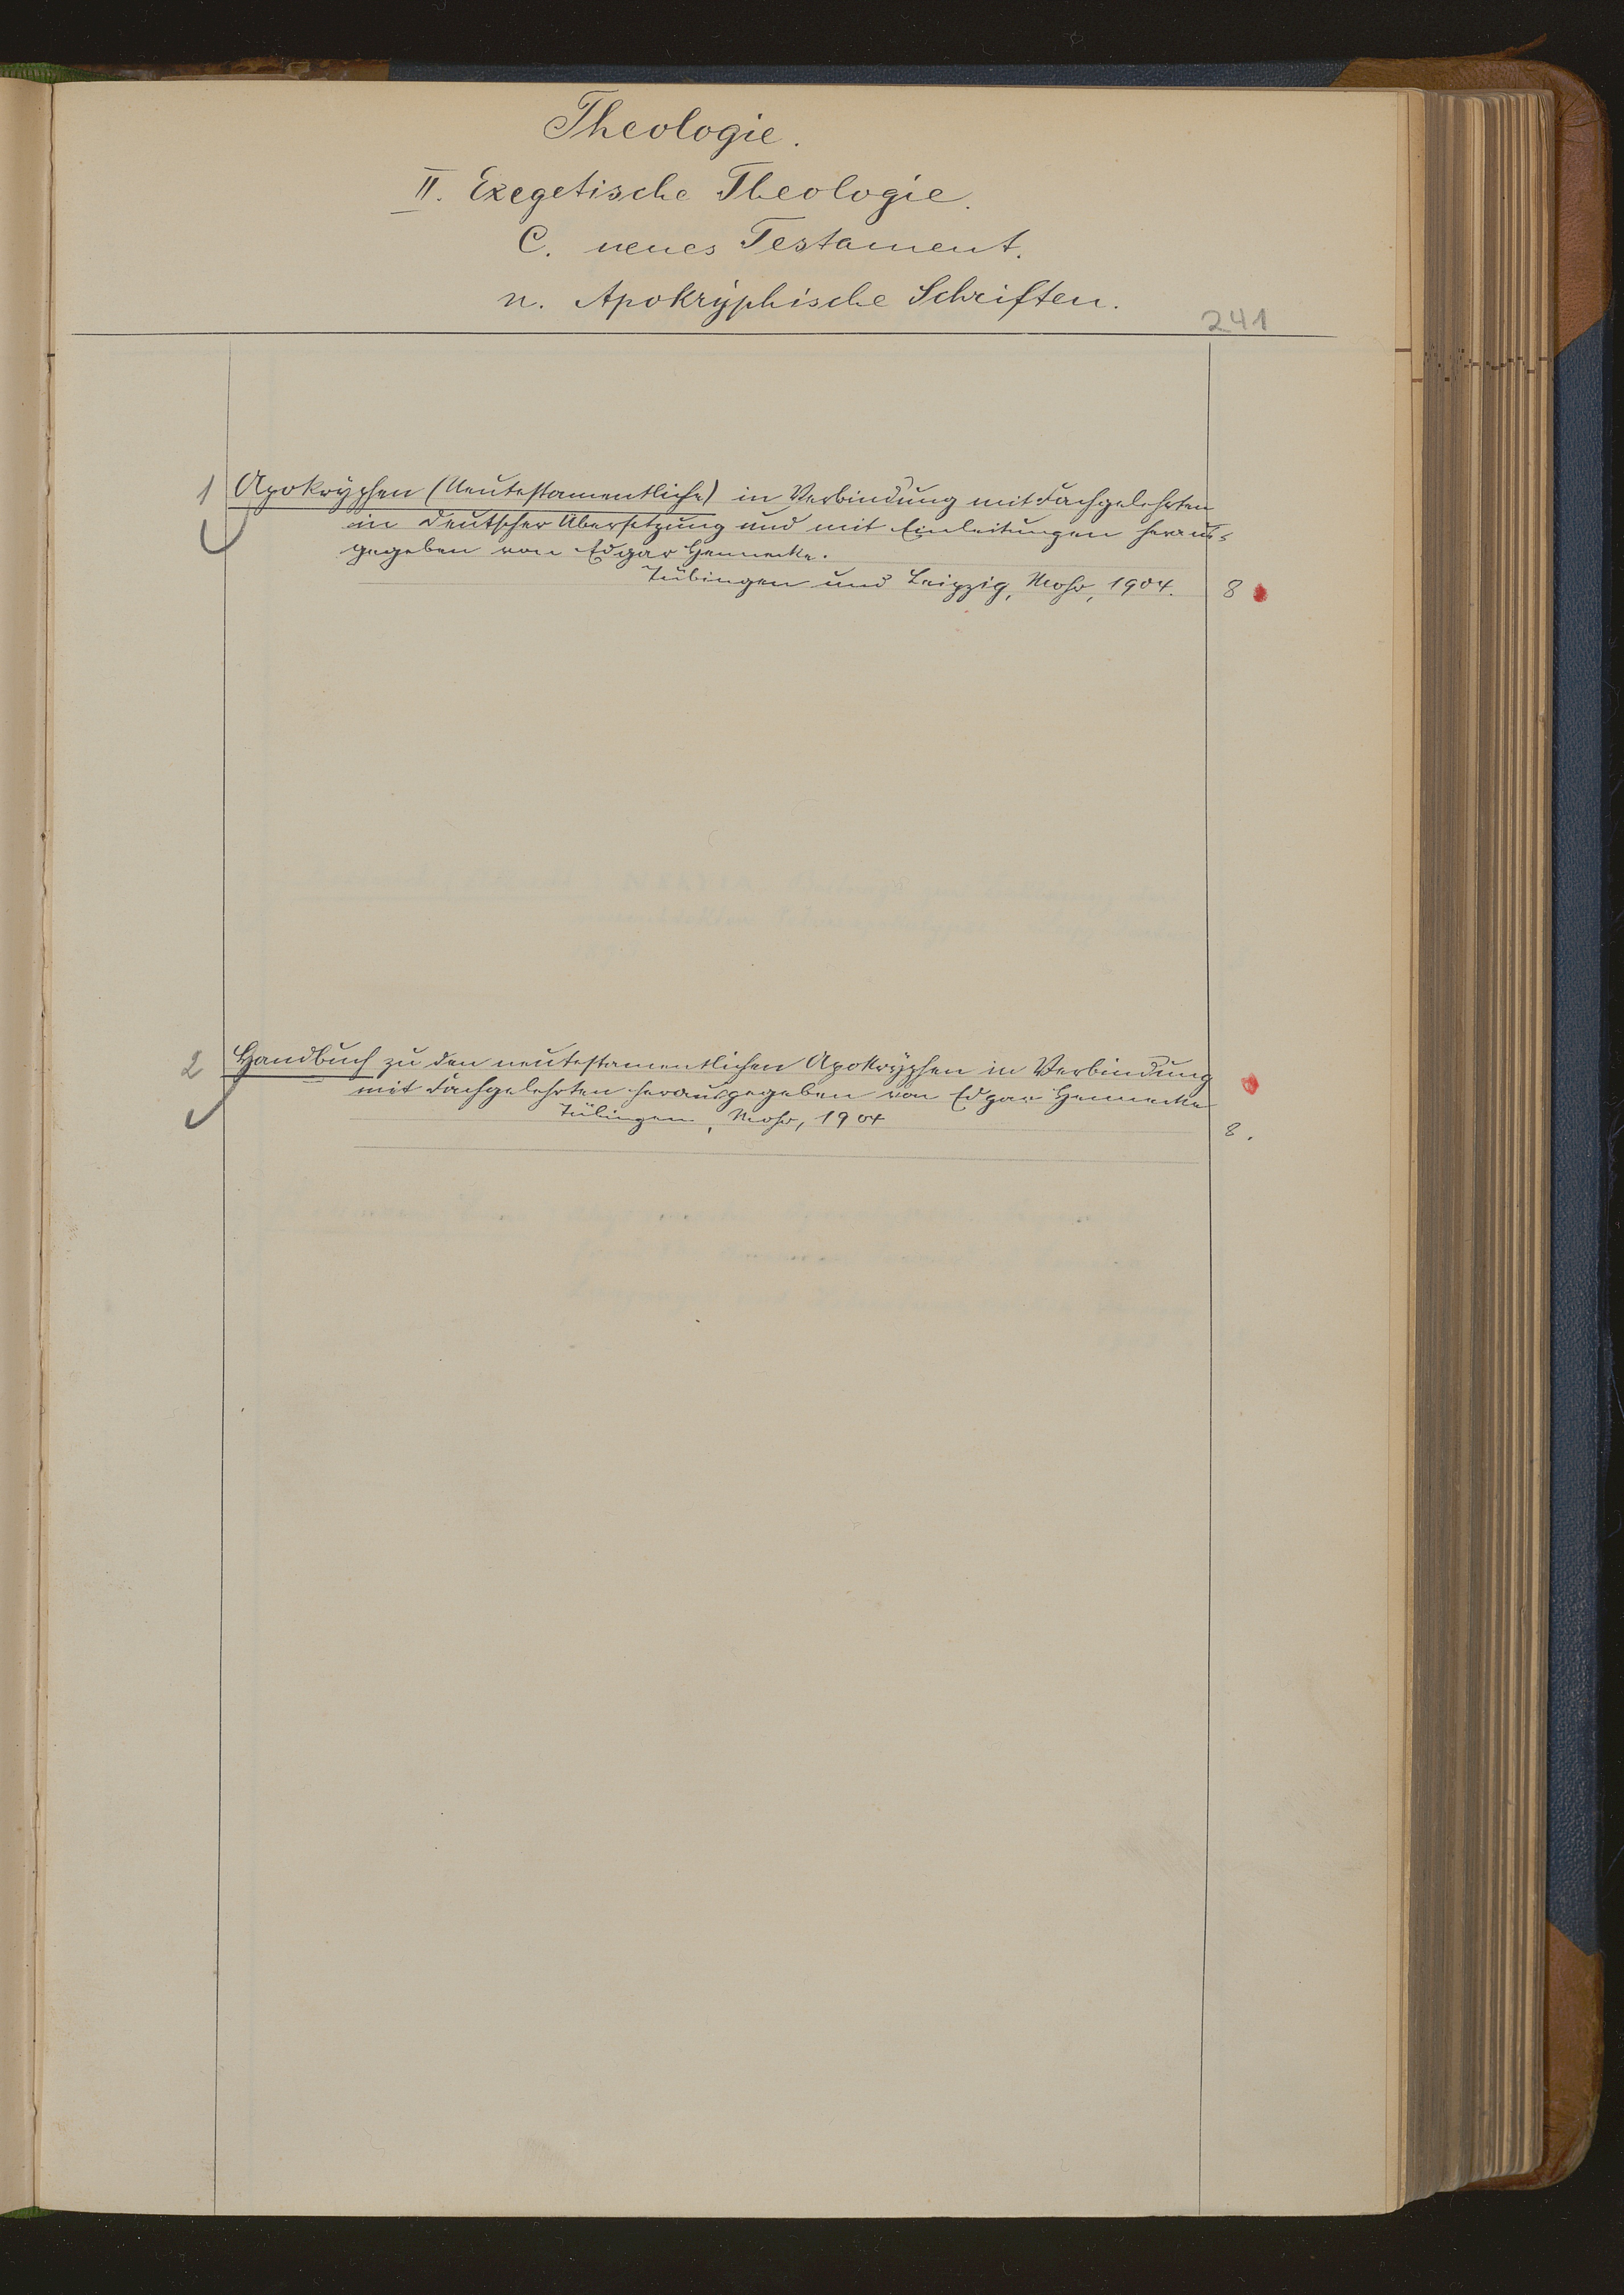 Theologie.
II. Exegetische Theologie.
C. neues Testament.
n. Apokryphische Schriften.
241
1 Apokryphen (Neutestamentliche) in Verbindung mit Fachgelehrten
in deutscher Übersetzung und mit Einleitungen heraus-
gegeben von Edgar Hennecke.
Tübingen und Leipzig, Mohr, 1904. 8
2 Handbuch zu den neutestamentlichen Apokryphen in Verbindung
mit Fachgelehrten herausgegeben von Edgar Hennecke
Tübingen, Mohr, 1904
8.